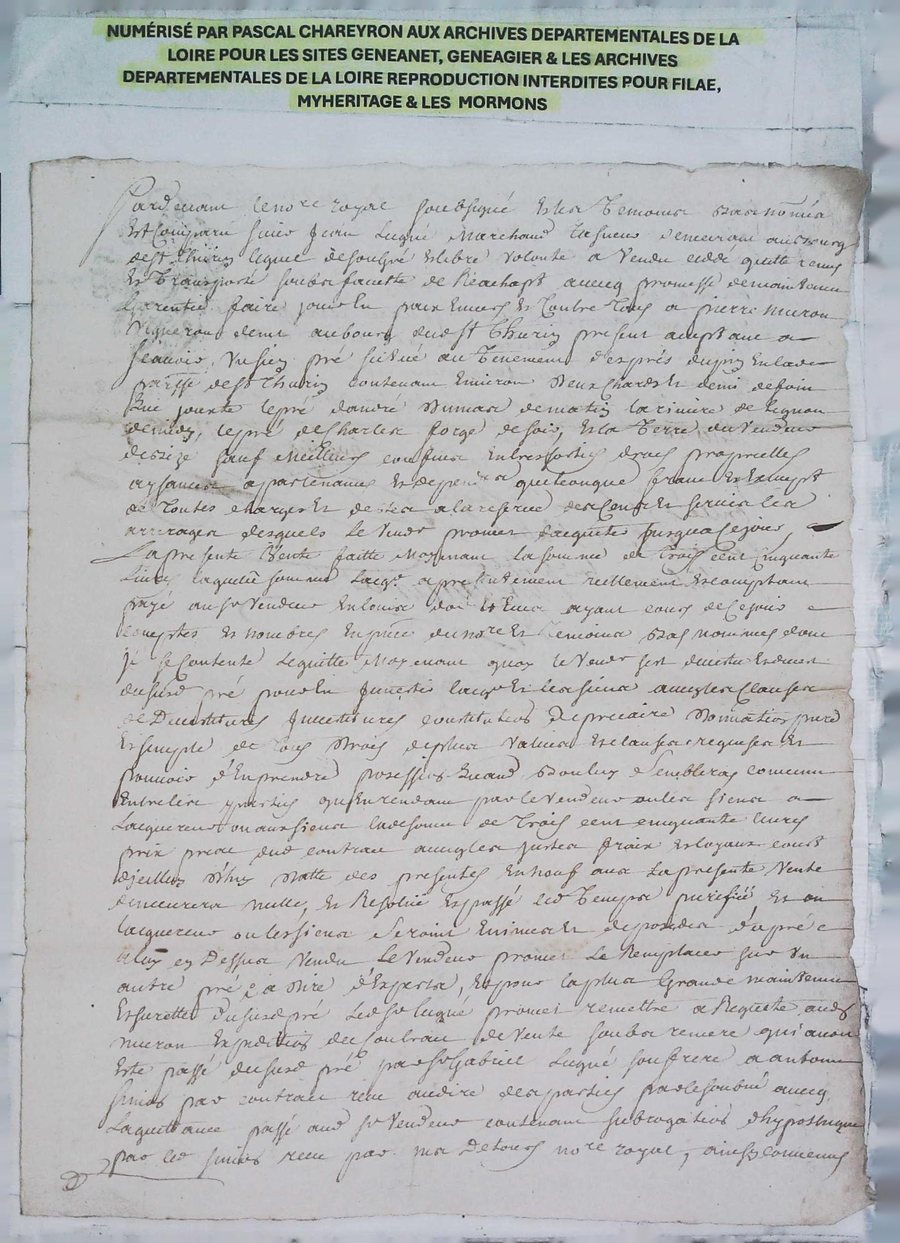 NUMÉRISÉ PAR PASCAL CHAREYRON AUX ARCHIVES DEPARTEMENTALES DE LA
LOIRE POUR LES SITES GENEANET, GENEAGIER & LES ARCHIVES
DEPARTEMENTALES DE LA LOIRE REPRODUCTION INTERDITES POUR FILAE,
MYHERITAGE & LES MORMONS
Pardevant le no.re royal soubsigné Et les Temoins bas nommés
Est Comparu sieur Jean Lugné Marchand demeurant au bourg
de St Thurin lequel de son gré et libre volonté a Vendu cedé quitté remis
Et Transporté soubs faculté de Réachapt avecq promesse de maintenir
Garentir faire jouir Envers Et Contre Tous a pierre muron
Vigneron demt au bourg dud St Thurin present acceptant a
scavoir, Un sien pré scitué au Tenement en lade
parisse de St Thurin contenant Environ Deux chards Et demi de foin
Qui jouxte le pré d'andré Dumas de matin la riviere de lignon
de midy, le pré de Charles forge de soir, Et la Terre du Vendeur
de bize sauf Meilleurs confins Entrées sorties droits proprietés
aysances apartenances Et dependces quelconque franc Et Exempt
de Toutes charges Et debtes a la reserve des Cens Et servis les
arrerages desquels le Vendr promet d'acquitter jusqua ce jour,
La presente Vente faitte Moyenant la somme de Trois cent Cinquante
Livres laquelle somme lacqr a presentement reellement Et comptant
payé aud sr Vendeur En louis d'or Et Ecus ayant cours de ce jour
comptés Et nombrés En pnce du no.re Et Temoins bas nommés dont
il se Contente le quitte Moyenant quoy le Vendr sest devetu
dususd pré pour En Investir lacqr Et les siens avecq les Clauses
de Devestitures Investitures constitution de precaire Donnation pure
Et simple de Tous Droits de plus Value Et clauses requises Et
pouvoir d'En prendre possession Quand bon luy semblera convenu
Entre les parties qu'En rendant par le Vendeur ou les siens a
Lacquereur ou aux siens lade somme de Trois cent cinquante livres
prix dud contrat avecq les justes fraix Et loyaux couts
d'jcelluy Datte des presentes En neuf ans La presente Vente
demeurera nulle, Et Resolue Et passé led Temps purifiée Et ou
lacquereur ou les siens seroint Evincés Et deposedés du pré
a luy cy Dessus Vendu Le Vendeur promet Le Remplacer sur Un
autre pré a Dire d'Experts, Et pour la plus Grande maintenue
Et surette dususd pré Led sr Lugné promet remettre a Requete aud
muron Expedition du Contrat de Vente soubs remeré qui avoit
Esté passé dususd pré par sr Gabriel Lugné son frere a antoine
par contrat receu au dire des parties par le soubné avecq
La quittance passé aud sr Vendeur contenant subrogation d'hypotheque
par led receu par me no.re royal, ainsy convenus